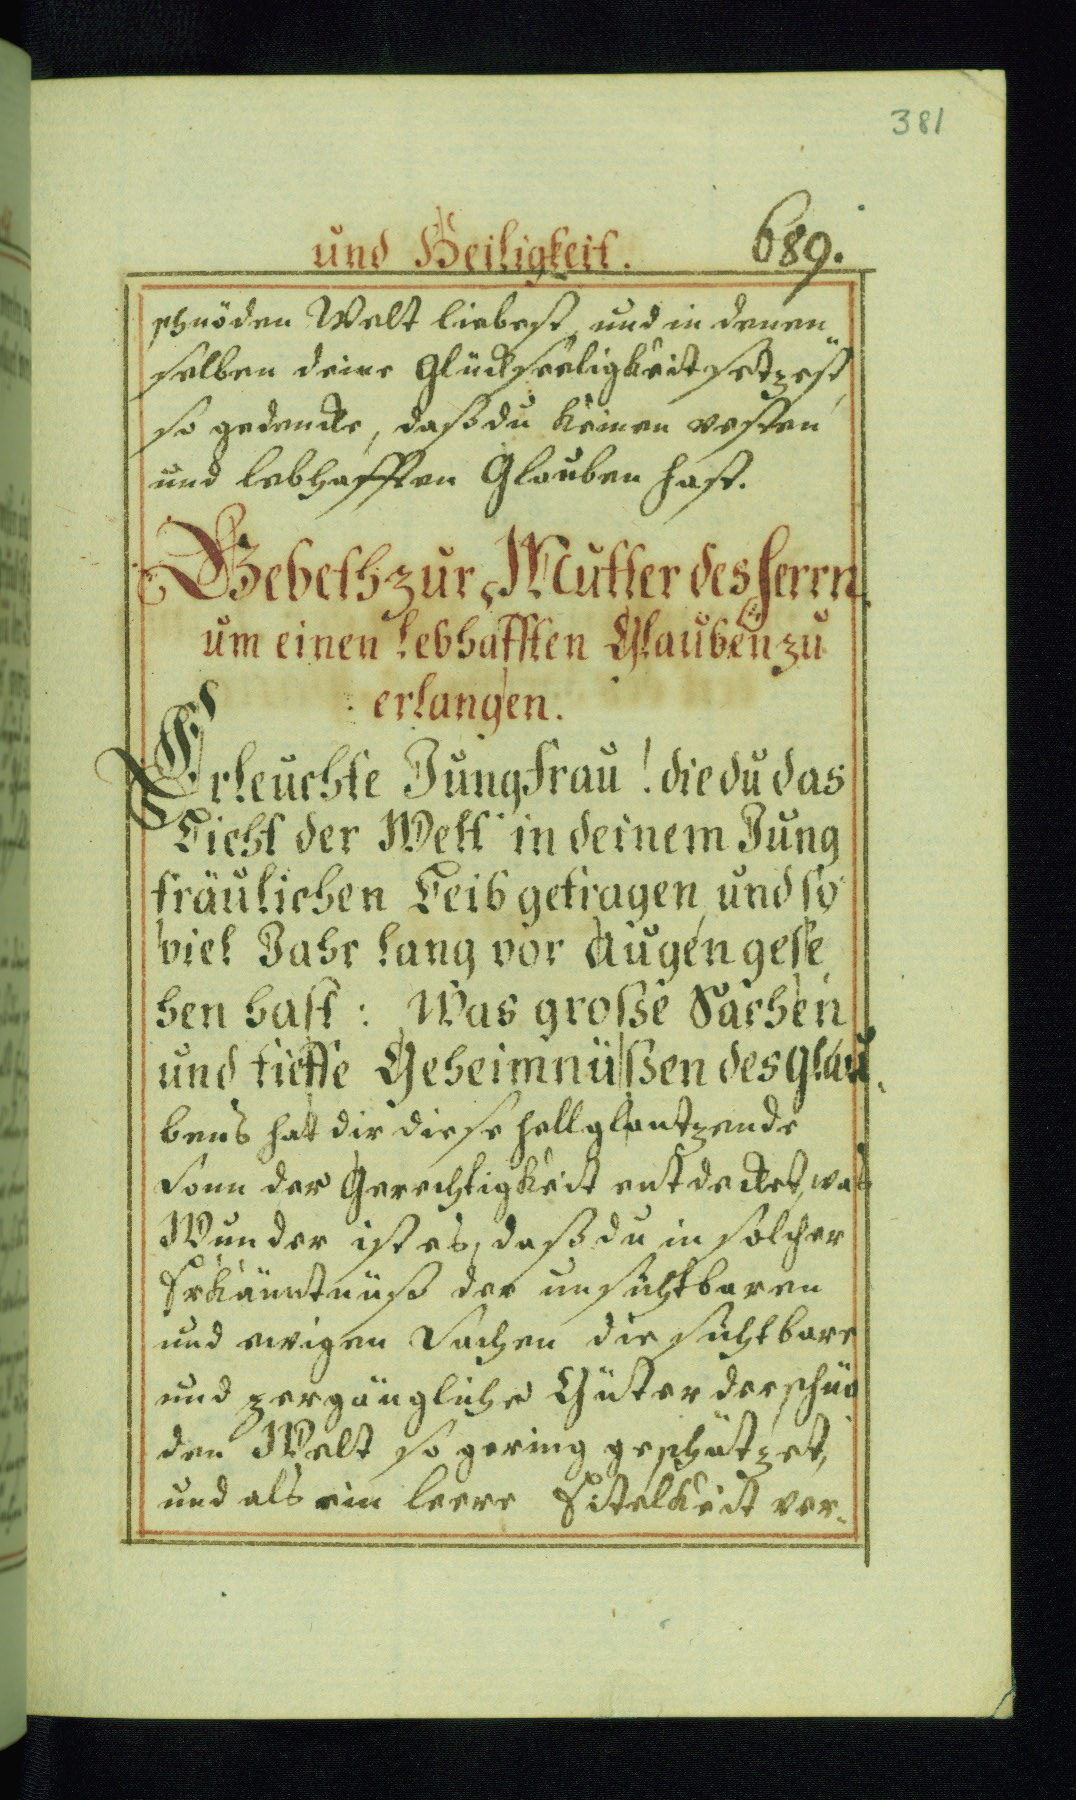 381
und Heiligkeit. 689.
schnöden Welt liebest, und in denen
selben deine Glückseeligkeit setzest,
so gedencke, daß du keinen vesten
und lebhafften Glauben hast.
Gebeth zur Mutter des Herrn
um einen lebhafften Glauben zu
erlangen.
Erleuchte Jungfrau! die du das
Licht der Welt in deinem Jung
fräulichen Leib getragen, und so
viel Jahr lang vor Augen gese
hen hast: Was große Sachen
und tieffe Geheimnüßen des Glau-
bens hat dir diese hellglantzende
Sonn der Gerechtigkeit entdecket, was
Wunder ist es, daß du in solcher
Erkäntnüß der unsichtbaren
und ewigen Sachen die sichtbare
und zergängliche Güter der schnö
den Welt so gering geschätzet,
und als ein leere Eitelkeit ver-